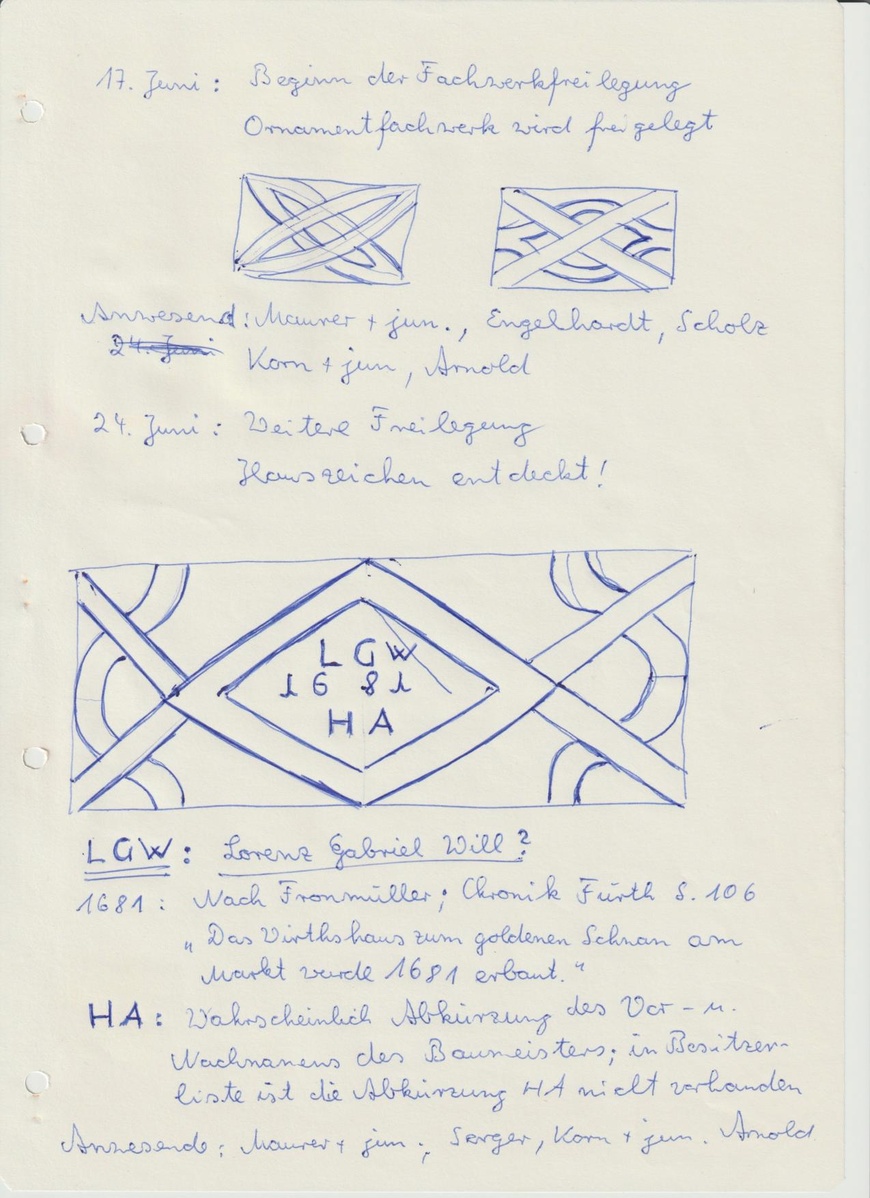 17. Juni: Beginn der Fachwerkfreilegung
Ornamentfachwerk wird freigelegt
Anwesend: Maurer + jun., Engelhardt, Scholz
24. Juni
Korn + jun, Arnold
24. Juni: Weitere Freilegung
Hauszeichen entdeckt!
LGW
16 81
HA
LGW: Lorenz Gabriel Will?
1681: Nach Fronmüller; Chronik Fürth S. 106
„Das Wirthshaus zum goldenen Schwan am
Markt wurde 1681 erbaut.“
HA: Wahrscheinlich Abkürzung des Vor- u.
Nachnamens des Baumeisters; in Besitzer-
liste ist die Abkürzung HA nicht vorhanden
Anwesende: Maurer + jun., Sarger, Korn + jun. Arnold